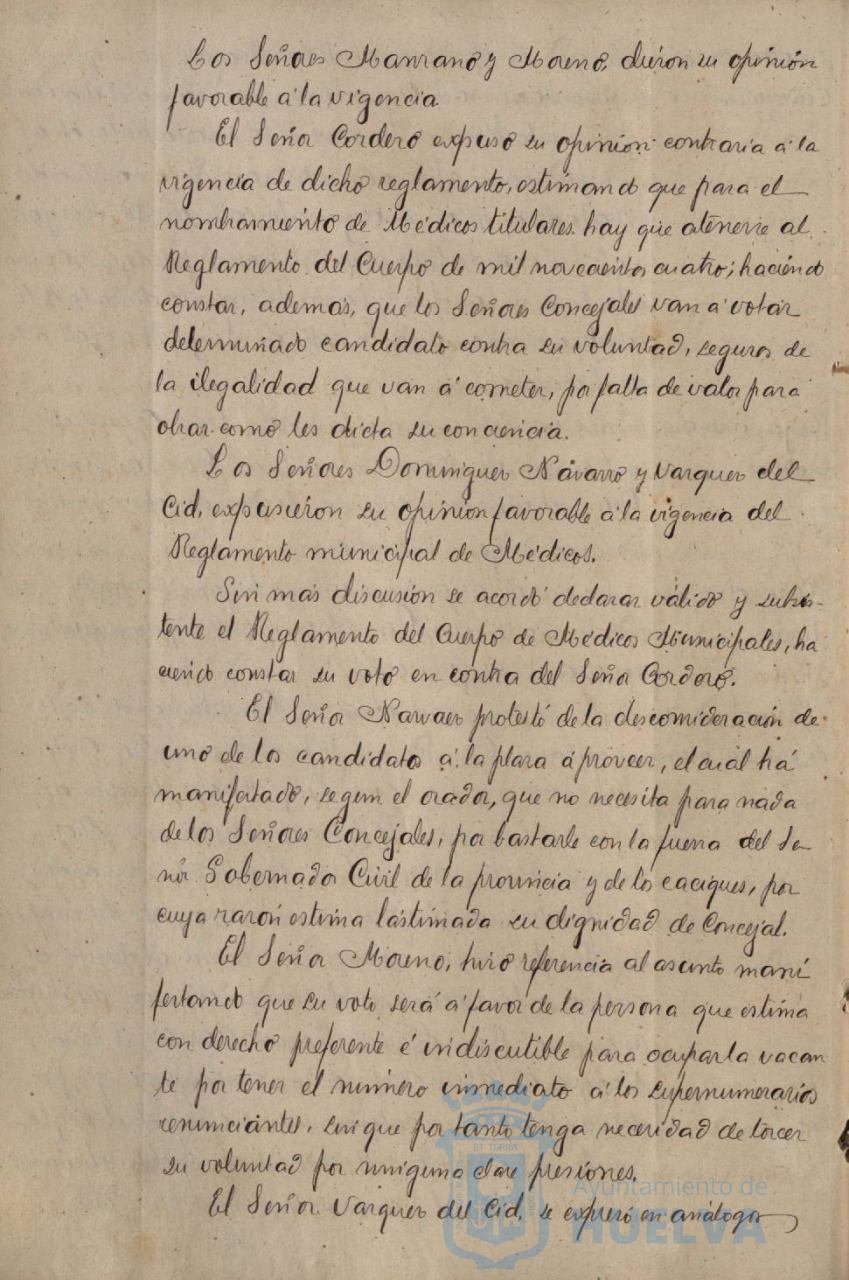 Los Señores Manzano y Moreno, dieron su opinión
favorable á la vigencia.
El Señor Cordero expuso su opinion contraria á la
vigencia de dicho reglamento, estimando que para el
nombramiento de Médicos titulares hay que atenerse al
Reglamento del Cuerpo de mil novecientos cuatro; haciendo
constar, además, que los Señores Concejales van á votar
determinado candidato contra su voluntad, seguros de
la ilegalidad que van á cometer, por falta de valor para
obrar como les dicta su conciencia.
Los Señores Dominguez Návarro y Vazquez del
Cid, expusieron su opinion favorable á la vigencia del
Reglamento municipal de Médicos.
Sin más discusión se acordó declarar válido y subsis-
tente el Reglamento del Cuerpo de Médicos Municipales, ha
ciendo constar su voto en contra del Señor Cordero.
El Señor Narvaez protestó de la desconsideración de
uno de los candidatos á la plaza á proveer, el cual há
manifestado, segun el orador, que no necesita para nada
de los Señores Concejales, por bastarle con la fuerza del Se-
ñor Gobernador Civil de la provincia y de los caciques, por
cuya razón estima lastimada su dignidad de Concejal.
El Señor Moreno, hizo referencia al asunto mani
festando que su voto será á favor de la persona que estima
con derecho preferente é indiscutible para ocupar la vacan
te por tener el número inmediato á los supernumerarios
renunciantes, sin que por tanto tenga necesidad de torcer
su voluntad por ninguna clase presiones.
El Señor Vazquez del Cid, se expresó en análogos
Ayuntamiento de
HUELVA